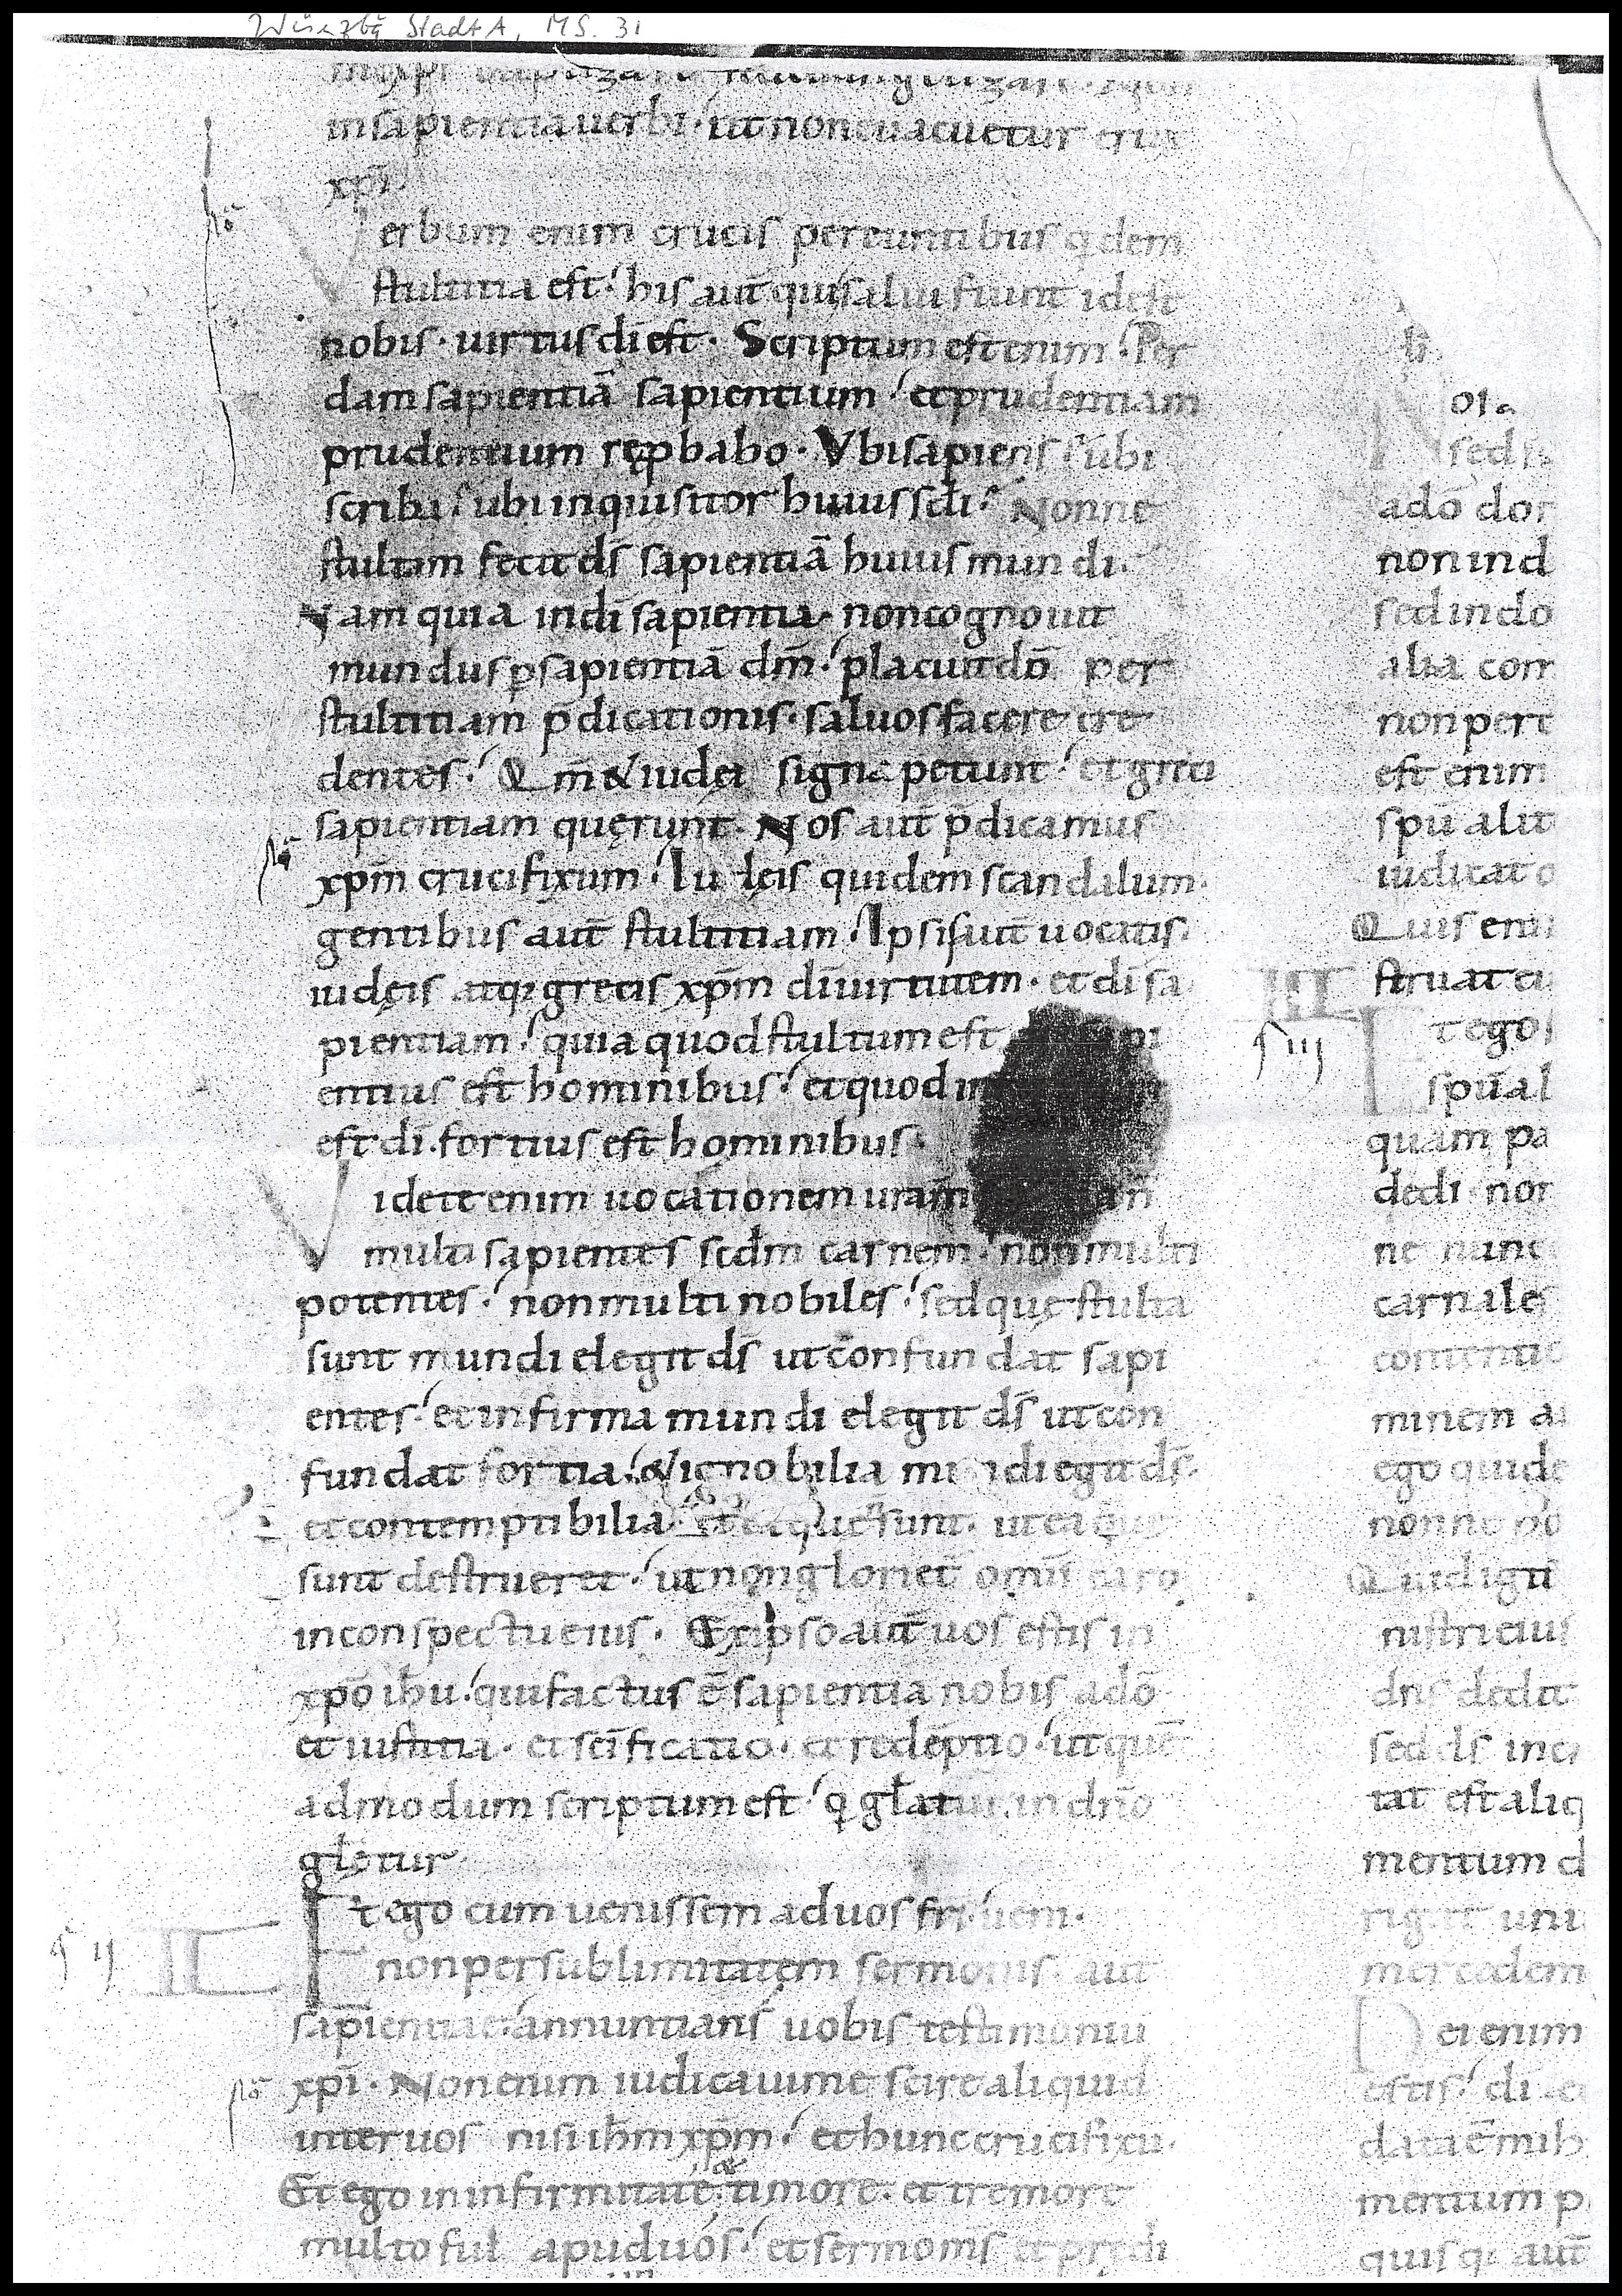 Würzbg StadtA, MS. 31
in sapientia uerbi · ut non euacuetur crux
xp̄i·
Verbum enim crucis pereuntibus qdem
stultitia est· his aut̄ qui salui fiunt idest
nobis · uirtus dī est · Scriptum est enim · Per
dam sapientiā sapientium · et prudentiam
prudentium rep̱babo · Vbi sapiens · ubi
scriba · ubi inquisitor huius sc̄li · Nonne
stultam fecit ds̄ sapientiā huius mundi·
Nam quia in dī sapientia · non cognouit
mundus p̱ sapientiā dm̄ · placuit dō per
stultitiam p̄dicationis · saluos facere cre
dentes · Qm̄ & iudei signa petunt · et greci
sapientiam quęrunt · Nos aut̄ p̄dicamus
xp̄m crucifixum · Iudęis quidem scandalum·
gentibus aut̄ stultitiam · Ipsis aut̄ uocatis·
iudęis atq; grecis xp̄m dī uirtutem · et dī sa
pientiam · quia quod stultum est pi
entius est hominibus · et quod in
est dī · fortius est hominibus·
Videte enim uocationem uram̄
multi sapientes scd̄m carnem · non multi
potentes · non multi nobiles · sed quę stulta
sunt mundi elegit ds̄ ut confundat sapi
entes · et infirma mundi elegit ds̄ ut con
fundat fortia · & ignobilia mundi egit ds̄·
et contemptibilia · quę n̄ sunt · ut ea que
sunt destrueret · ut non gloriet̄ omīs caro
in conspectu eius · Ex ipso aut̄ uos estis in
xp̄o ih̄u · qui factus ē sapientia nobis a dō
et iustitia · et sc̄ificatio · et redēptio · ut quē
admodum scriptum est · q gl̄atur in dn̄o
gl̄etur
Et ego cum uenissem ad uos fr̄s · ueni·
ꝯ II II
non per sublimitatem sermonis · aut
sapientiae · annuntians uobis testimoniū
xp̄i · Non enim iudicaui me scire aliquid
inter uos nisi ih̄m xp̄m · et hunc crucifixū·
Et ego in infirmitate & timore · et tremore
multo fui apud uos · et sermo m̄s et prędi
oia
sed
a dō dor
non in d
sed in do
alia com
non perc
est enim
spū alit
iudicat o
Quis enī
struat
III
t ego
spū al
quam pa
dedi non
ne nunc
carnales
contentio
minem
ego quide
nonne ho
Quid igit̄
nistri eius
dn̄s dedit
sed ds̄ inc
tat est aliq
mentum d
uni
mercedem
Dei enim
estis · dī
data ē mih
mentum
quis aut̄